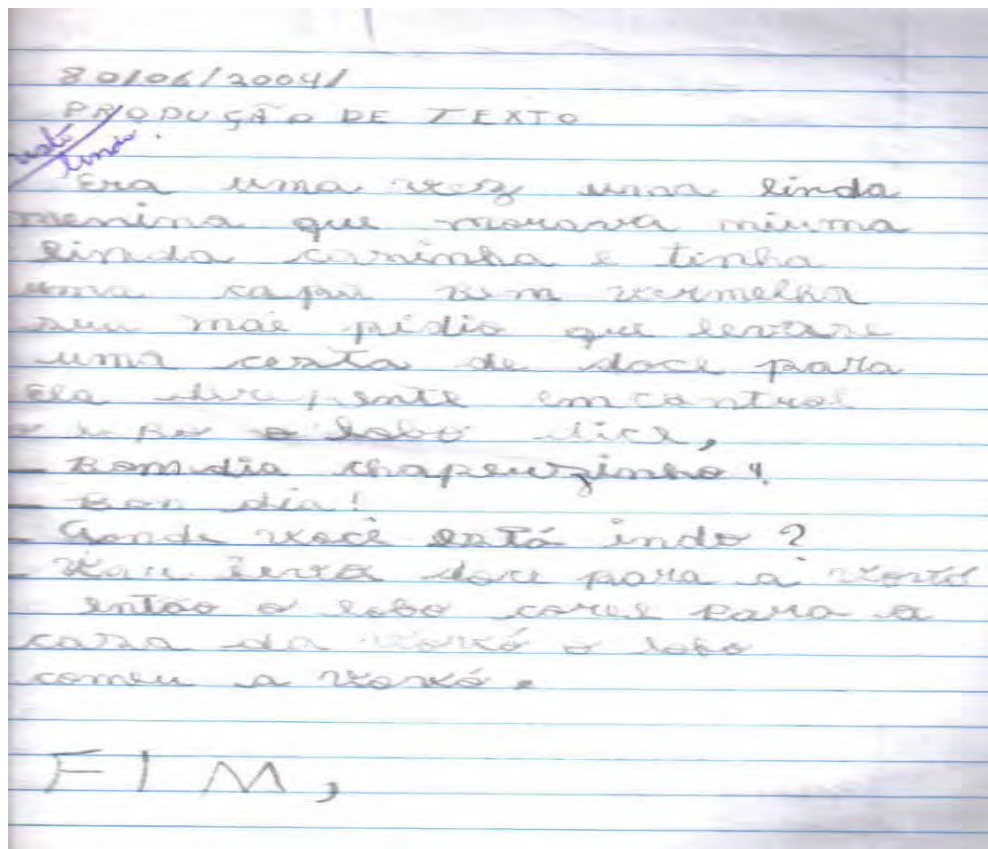 30/06/2004/
PRODUÇÃO DE TEXTO
está
lindo.
Era uma vez uma linda
menina que morava miuma
linda casinha e tinha
uma capa bem vermelha
sua mãe pidio que levase
uma cesta de doce para
Ela derepente emcontrol
o lobo dice,
- Bom dia chapeuzinho!
- Bon dia!
- Aonde você está indo?
- Vou levar doce para a vovó
então o lobo corel para a
casa da vovó o lobo
comeu a vovó.
FIM,